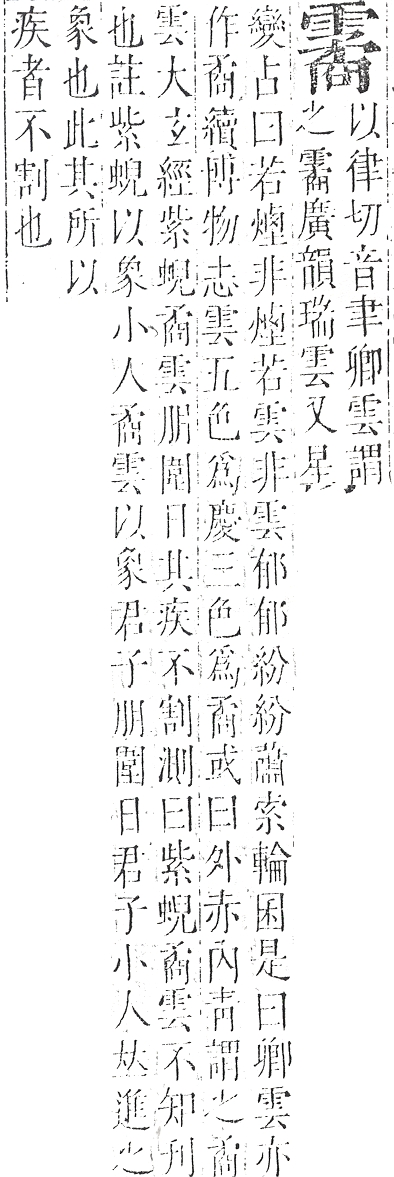 霱 以律切音聿卿雲謂
之霱廣韻瑞雲又星
變占曰若煙非煙若雲非雲郁郁紛紛蕭索輪困是曰卿雲亦
作矞續博物志雲五色爲慶三色爲矞或曰外赤內靑謂之矞
雲大玄經紫蜺矞雲朋圍日其疾不割測曰紫蜺矞雲不知刋
也註紫蜺以象小人矞雲以象君子朋圍日君子小人𠀤進之
象也此其所以
疾者不割也